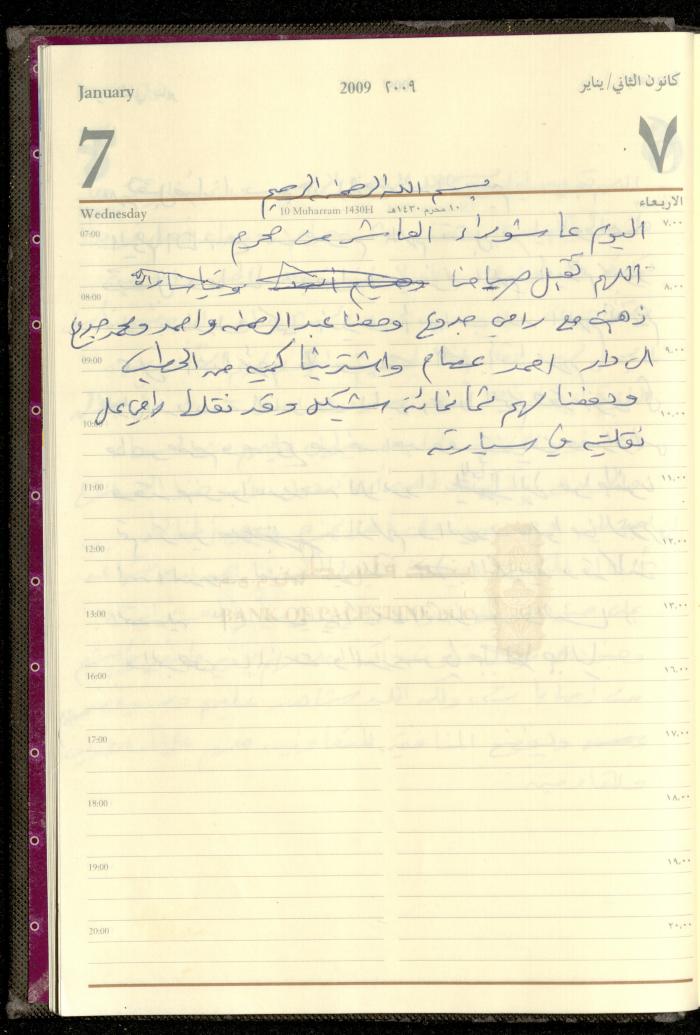 January 2009 ٢٠٠٩ كانون الثاني/يناير
7 ٧
بسم الله الرحمن الرحيم
Wednesday 10 Muharram 1430H ١٠ محرم ١٤٣٠هـ الاربعاء
07:00 اليوم عاشوراء العاشر من محرم ٧,٠٠
اللهم تقبل صيامنا ٨,٠٠
08:00
ذهبت مع رامي جدوع ومعنا عبد الرحمن واحمد ومحمد جدوع
09:00 ٩,٠٠
ال دار احمد عصام واشترينا كميه من الحطب
ودفعنا لهم ثمانمائة شيكل وقد نقلها رامي على
10:00 ١٠,٠٠
نقلتين في سيارته
11:00 ١١,٠٠
12:00 ١٢,٠٠
13:00 ١٣,٠٠
BANK OF PALESTINE
16:00 ١٦,٠٠
17:00 ١٧,٠٠
18:00 ١٨,٠٠
19:00 ١٩,٠٠
20:00 ٢٠,٠٠